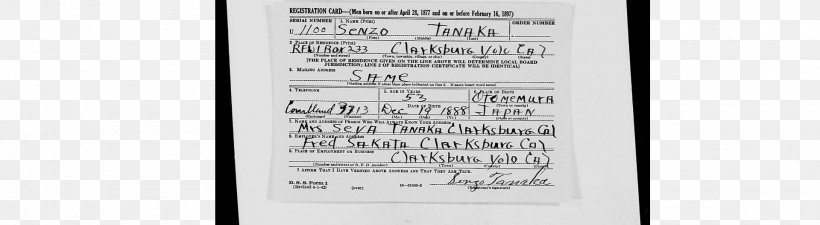 REGISTRATION CARD—(Men born on or after April 28, 1877 and on or before February 16, 1897)
SERIAL NUMBER 1. NAME (Print) ORDER NUMBER
U 1100 SENZO TANAKA
(First) (Middle) (Last)
2. PLACE OF RESIDENCE (Print)
RFD1 Box 233 Clarksburg Yolo Cal
(Number and street) (Town, township, village, or city) (County) (State)
[THE PLACE OF RESIDENCE GIVEN ON THE LINE ABOVE WILL DETERMINE LOCAL BOARD
JURISDICTION; LINE 2 OF REGISTRATION CERTIFICATE WILL BE IDENTICAL]
3. MAILING ADDRESS
SAME
[Mailing address if other than place indicated on line 2. If same insert word same]
4. TELEPHONE 5. AGE IN YEARS 6. PLACE OF BIRTH
53 Otomemura
DATE OF BIRTH (Town or county)
3713 Dec 19 1888 JAPAN
(Exchange) (Number) (Mo.) (Day) (Yr.) (State or country)
7. NAME AND ADDRESS OF PERSON WHO WILL ALWAYS KNOW YOUR ADDRESS
Mrs SEYA TANAKA Clarksburg Cal
8. EMPLOYER'S NAME AND ADDRESS
Fred SAKATA Clarksburg Cal
9. PLACE OF EMPLOYMENT OR BUSINESS
Clarksburg Yolo Cal
(Number and street or R. F. D. number) (Town) (County) (State)
I AFFIRM THAT I HAVE VERIFIED ABOVE ANSWERS AND THAT THEY ARE TRUE.
D. S. S. Form 1 Senzo Tanaka
(Revised 4-1-42) (over) (Registrant's signature)